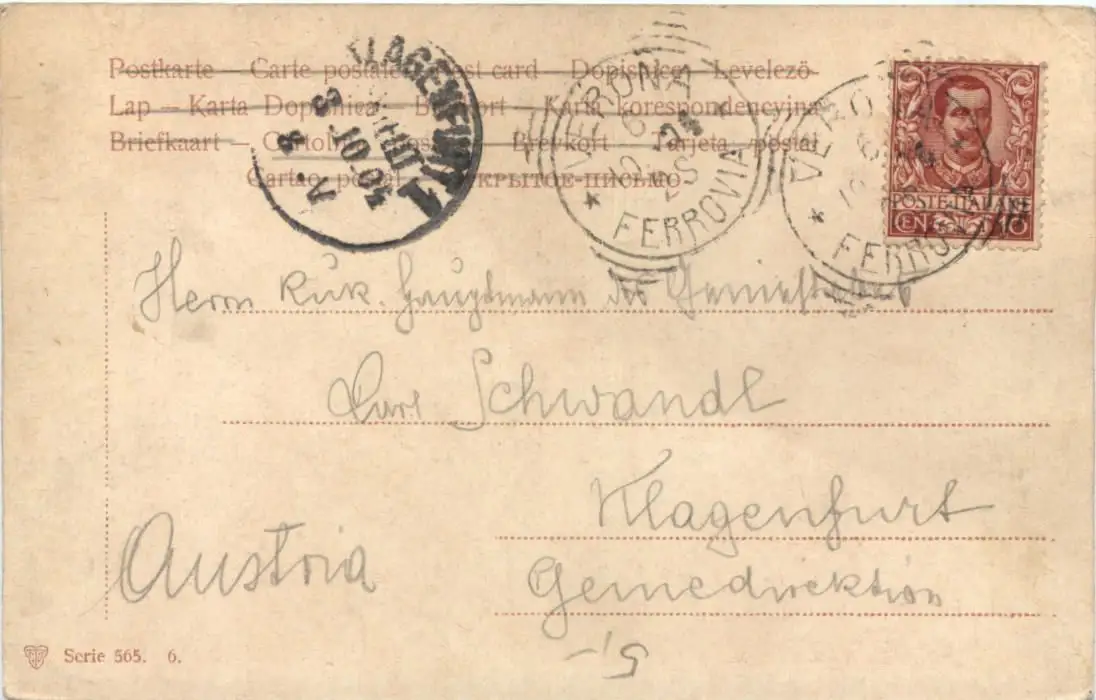 Postkarte – Carte postale – Post card – Dopisnice – Levelező-
Lap – Karta Dopisnica – Brefkort – Karta korespondencyjna
Briefkaart – Cartolina postale – Brevkort – Tarjeta postal
Cartao postal – ОТКРЫТОЕ-ПИСЬМО
KLAGENFURT 1
VERONA
FERROVIA
VERONA
FERROVIA
POSTE-ITALIANE
CENT 10
Herrn k u k. Hauptmann des Geniestabes
Carl Schwandl
Klagenfurt
Austria
Geniedirektion
5.-
Serie 565. 6.